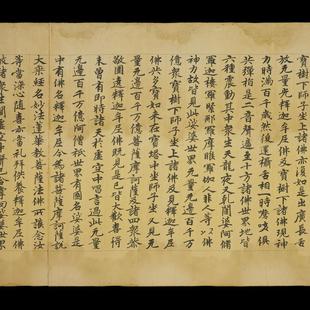 寶樹下師子坐上諸佛亦復如是出廣長舌
放无量光釋迦牟尼佛及寶樹下諸佛現神
力時滿百千歲然後還攝舌相一時謦欬俱
共彈指是二音聲遍至十方諸佛世界地皆
六種震動其中眾生天龍夜叉乾闥婆阿脩
羅迦樓羅緊那羅摩睺羅伽人非人等以佛
神力故皆見此娑婆世界无量无邊百千万
億眾寶樹下師子坐上諸佛及見釋迦牟尼
佛共多寶如來在寶塔中坐師子坐又見无
量无邊百千万億菩薩摩訶薩及諸四眾恭
敬圍遶釋迦牟尼佛既見是已皆大歡喜得
未曾有即時諸天於虛空中高聲唱言過此无量
无邊百千万億阿僧祇世界有國名娑婆是
中有佛名釋迦牟尼今為諸菩薩摩訶薩說
大乘經名妙法蓮華教菩薩法佛所護念汝
等當深心隨喜亦當禮拜供養釋迦牟尼佛
彼諸眾生聞虛空中聲已合掌向娑婆世界